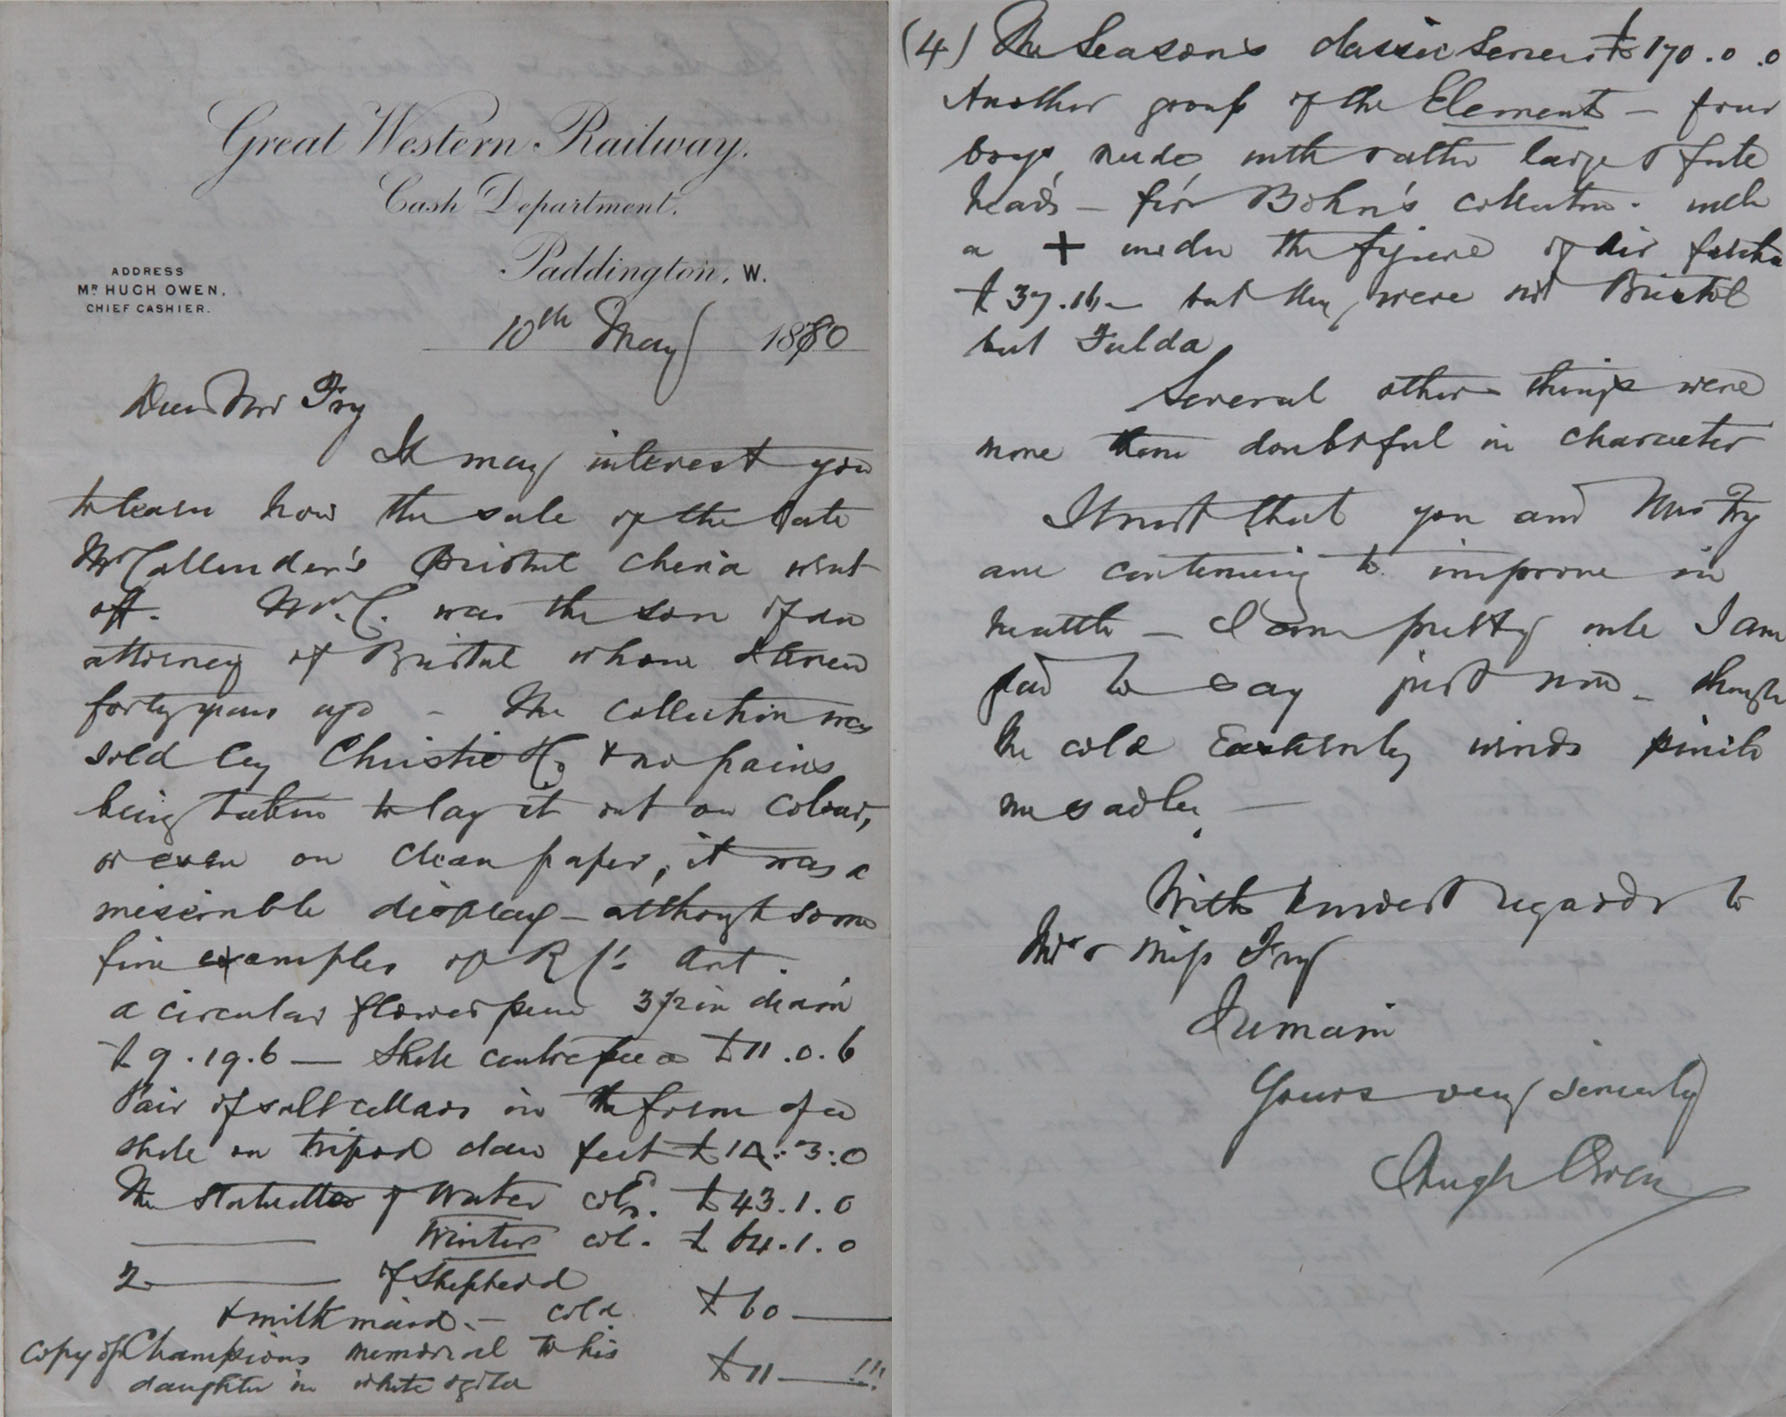 Great Western Railway.
Cash Department.
Paddington, W.
ADDRESS
Mr HUGH OWEN,
CHIEF CASHIER.
10th May 1880
Dear Mr Fry
It may interest you
to learn how the sale of the late
Mr Callender's Bristol china went
off. Mr. C. was the son of an
attorney of Bristol whom I knew
forty years ago - The collection was
sold by Christie & Co & no pains
being taken to lay it out on colour,
or even on clean paper, it was a
miserable display - although some
fine examples of R C's art.
a circular flower 3 1/2 in diam
£9.19.6 — Shell centre piece £11.0.6
Pair of salt cellars in the form of a
shell on tripod claw feet £14:3:0
The statuettes of Water cold. £43.1.0
Winter col. £64.1.0
2 of Shepherd
& milkmaid. - cold £60
copy of Champions memorial to his
daughter in white £11 !!!
(4) The Seasons classic series £170.0.0
Another group of the Elements - four
boys, nude with rather large
heads - from Bohn's collection. with
a + under the figure of air fetched
£37.16 - but they were not Bristol
but Fulda
Several other things were
more than doubtful in character
I trust that you and Mrs Fry
are continuing to improve in
health - I am pretty well I am
glad to say just now - though
the cold Easterly winds pinch
me sadly -
With kindest regards to
Mrs & Miss Fry
I remain
Yours very sincerely
Hugh Owen